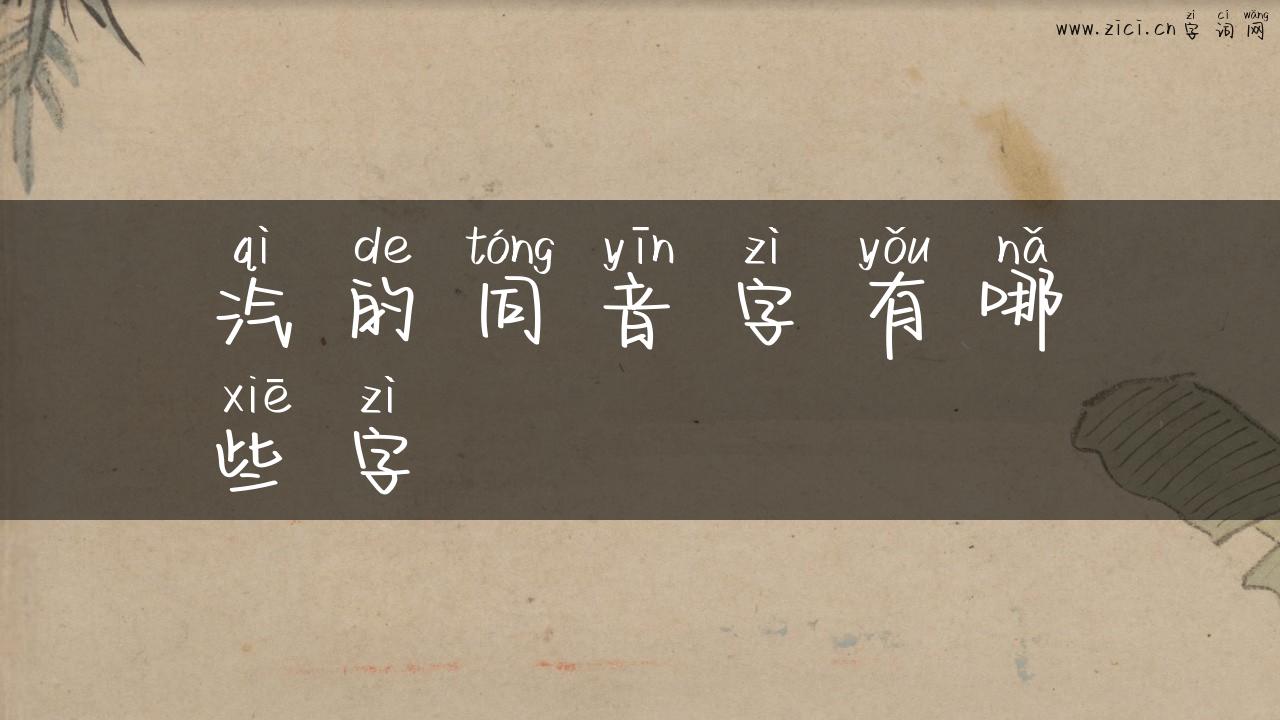 zì cí wǎng
www.zici.cn 字词网
qì de tóng yīn zì yǒu nǎ
汽的同音字有哪
xiē zì
些字